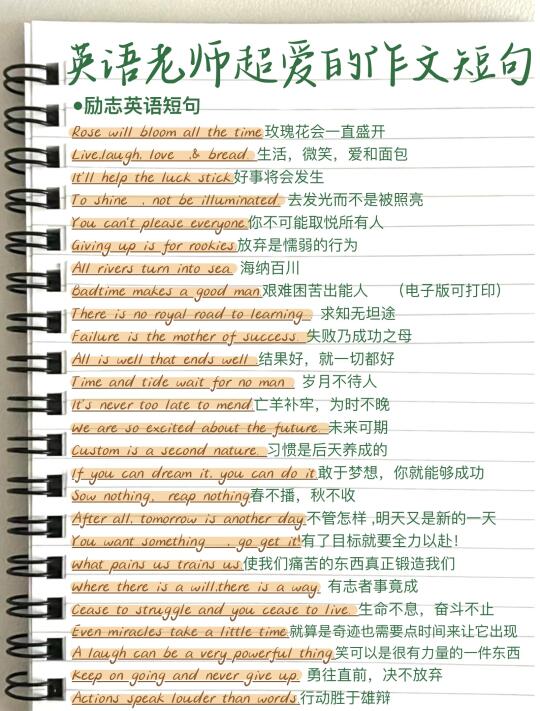 英语老师超爱的作文短句
●励志英语短句
Rose will bloom all the time 玫瑰花会一直盛开
Live,laugh, love ,& bread. 生活，微笑，爱和面包
It'll help the luck stick 好事将会发生
To shine , not be illuminated. 去发光而不是被照亮
You can't please everyone 你不可能取悦所有人
Giving up is for rookies. 放弃是懦弱的行为
All rivers turn into sea. 海纳百川
Badtime makes a good man. 艰难困苦出能人 （电子版可打印）
There is no royal road to learning . 求知无坦途
Failure is the mother of success. 失败乃成功之母
All is well that ends well . 结果好，就一切都好
Time and tide wait for no man . 岁月不待人
It's never too late to mend. 亡羊补牢，为时不晚
We are so excited about the future. 未来可期
Custom is a second nature. 习惯是后天养成的
If you can dream it, you can do it. 敢于梦想，你就能够成功
Sow nothing, reap nothing 春不播，秋不收
After all, tomorrow is another day. 不管怎样 ,明天又是新的一天
You want something , go get it! 有了目标就要全力以赴！
What pains us trains us. 使我们痛苦的东西真正锻造我们
Where there is a will,there is a way. 有志者事竟成
Cease to struggle and you cease to live. 生命不息，奋斗不止
Even miracles take a little time. 就算是奇迹也需要点时间来让它出现
A laugh can be a very powerful thing. 笑可以是很有力量的一件东西
Keep on going and never give up. 勇往直前，决不放弃
Actions speak louder than words. 行动胜于雄辩